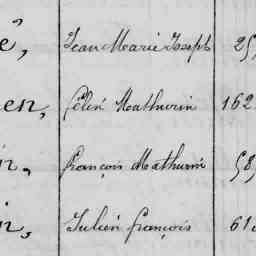 ê, Jean Marie Joseph 25,
en, Célin Mathurin 162
n, François Mathurin 58,
n, Julien françois 61